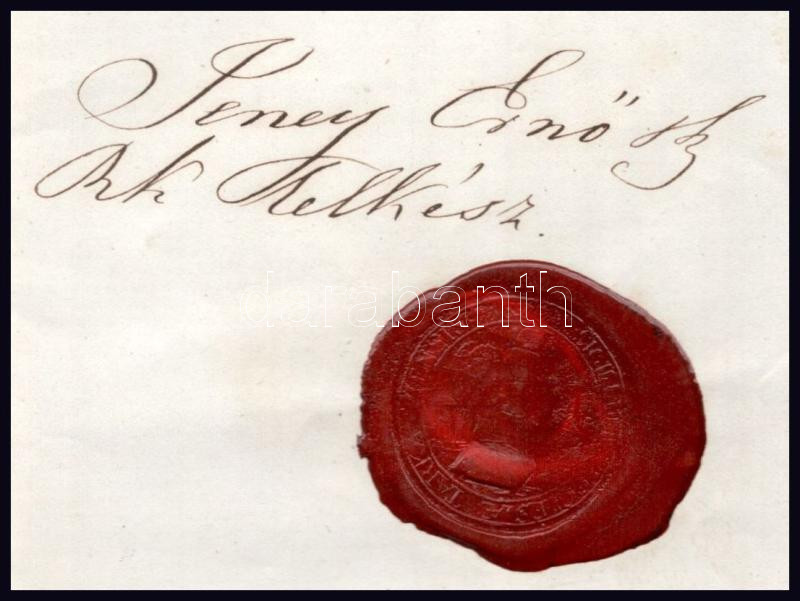 Jeney Ernő sk
Rk Lelkész.
darabanth